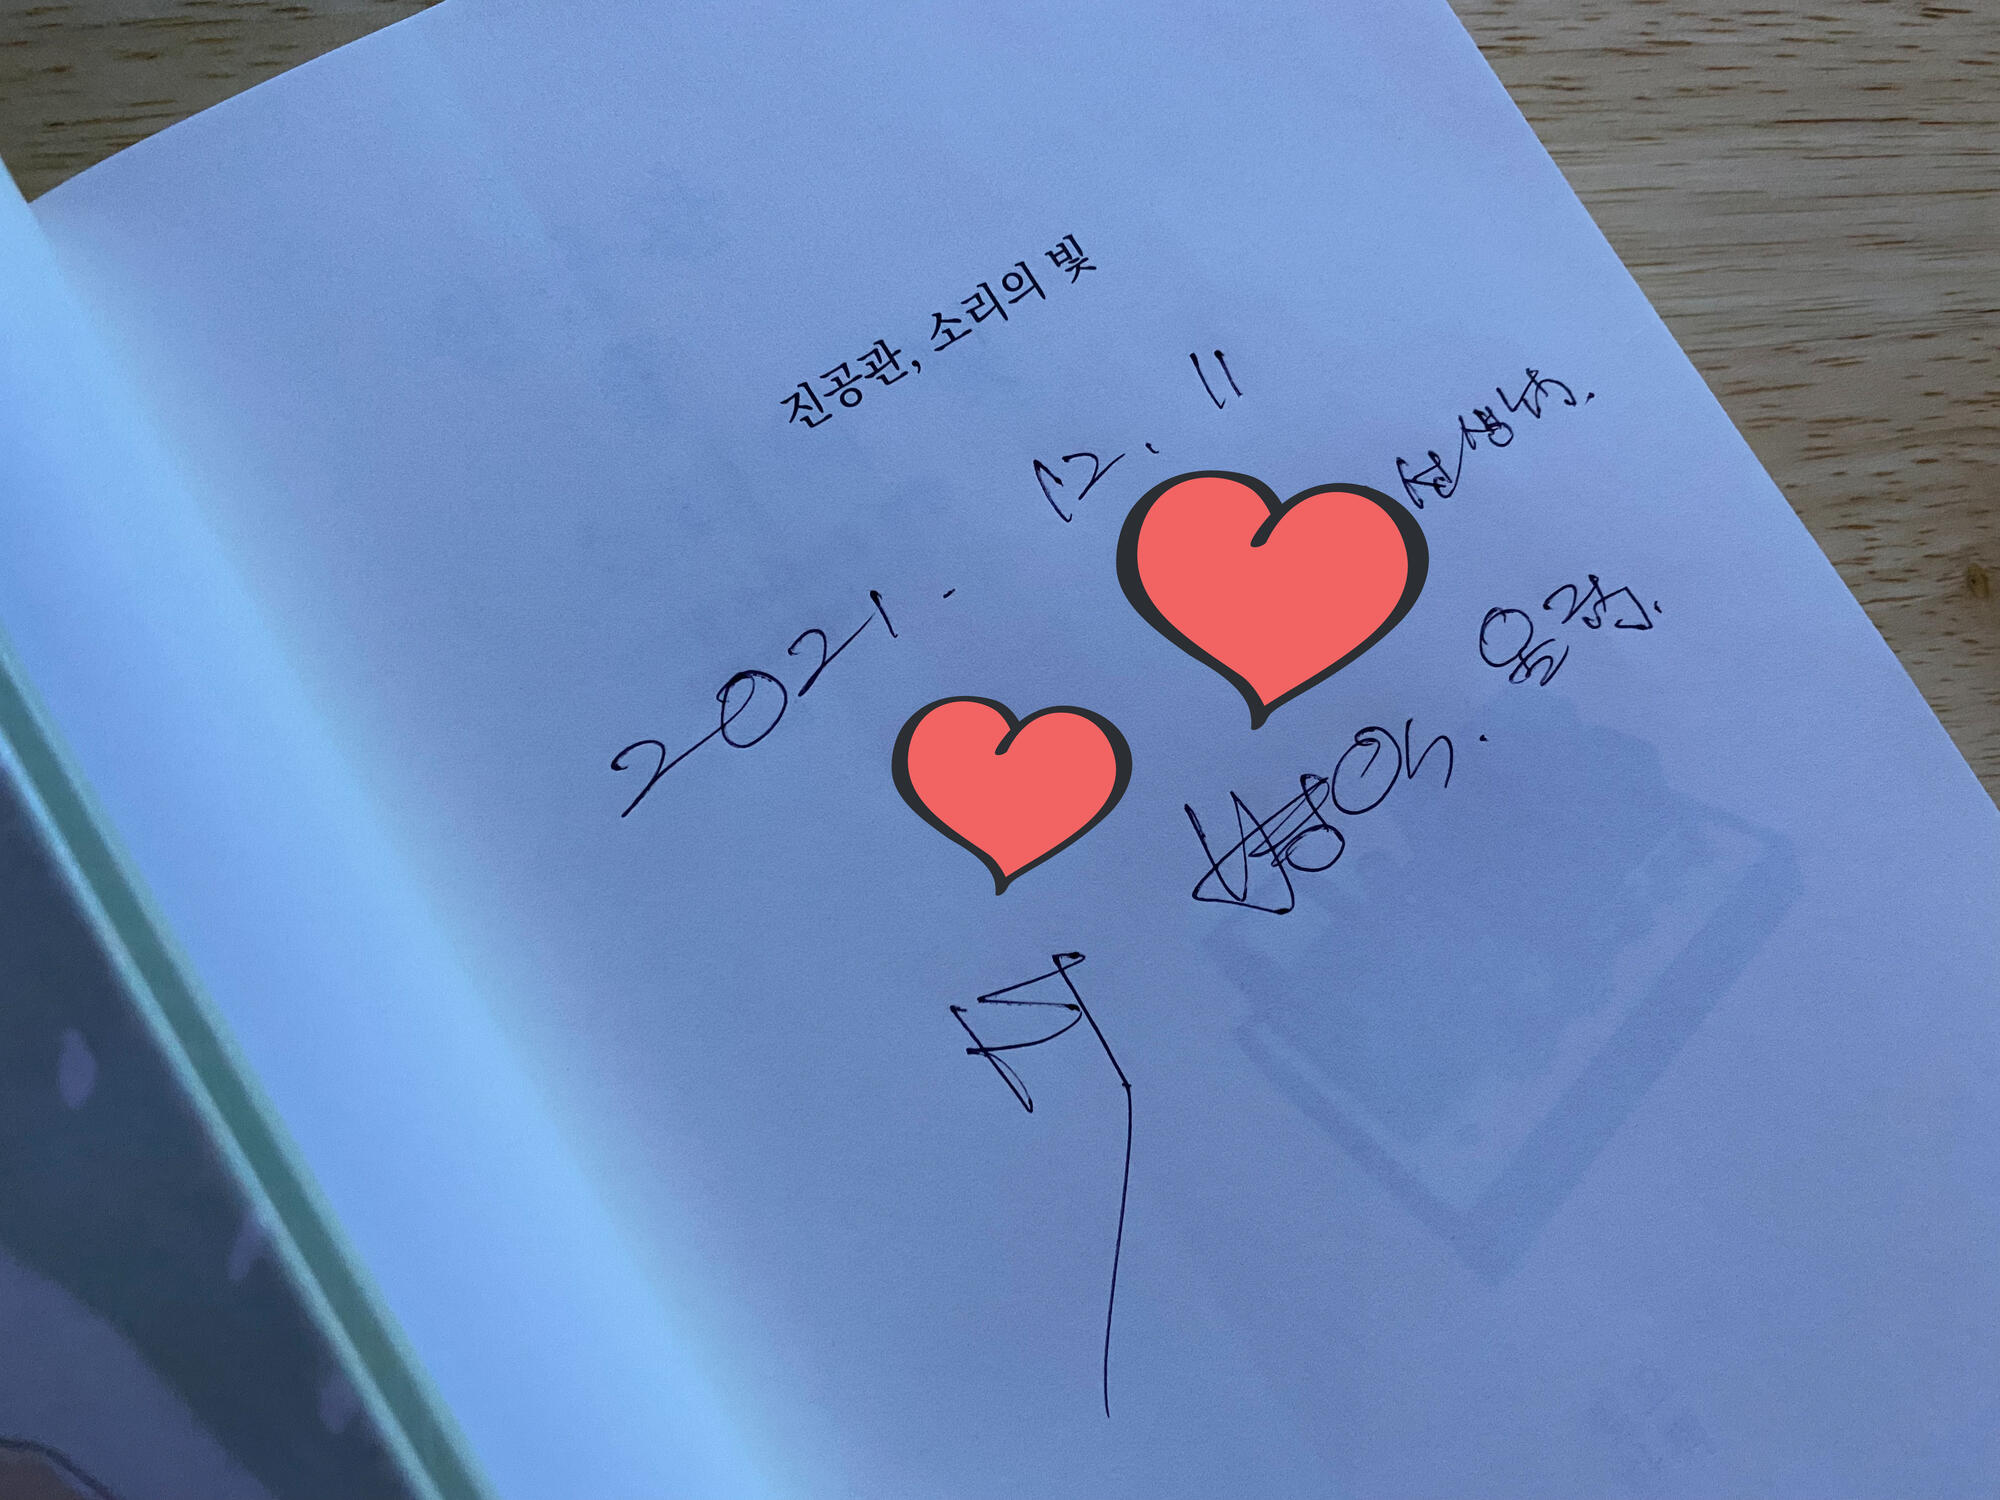 진공관, 소리의 빛
2021. 12. 11
선생님.
올림.